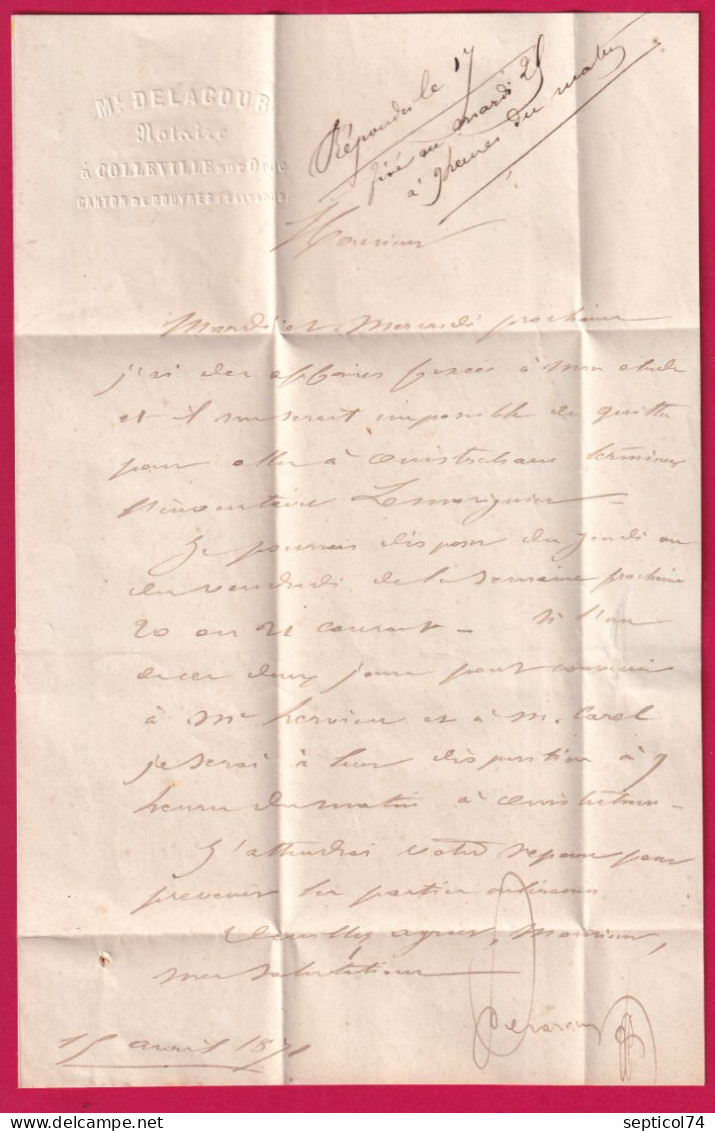 Me DELACOUR
Notaire
à COLLEVILLE sur Orne
CANTON DE DOUVRES (CALVADOS)
Répondu le 17
fixé au mardi 25
à 9 heures du matin
Monsieur
Mardi et Mercredi prochain
j'ai des affaires fixées à mon étude
et il me serait impossible de quitter
pour aller à Ouistreham terminer
l'inventaire Lemarignier
Je pourrais disposer du Jeudi ou
du vendredi de la Semaine prochaine
20 ou 21 courant - Si l'un
de ces deux jours peut convenir
à Me hervieu et à M. Carel
je serai à leur disposition à 9
heures du matin à Ouistreham -
J'attendrai votre réponse pour
prévenir les parties
Veuillez agréer, Monsieur,
mes salutations
Delacour
15 avril 1871
septicol74